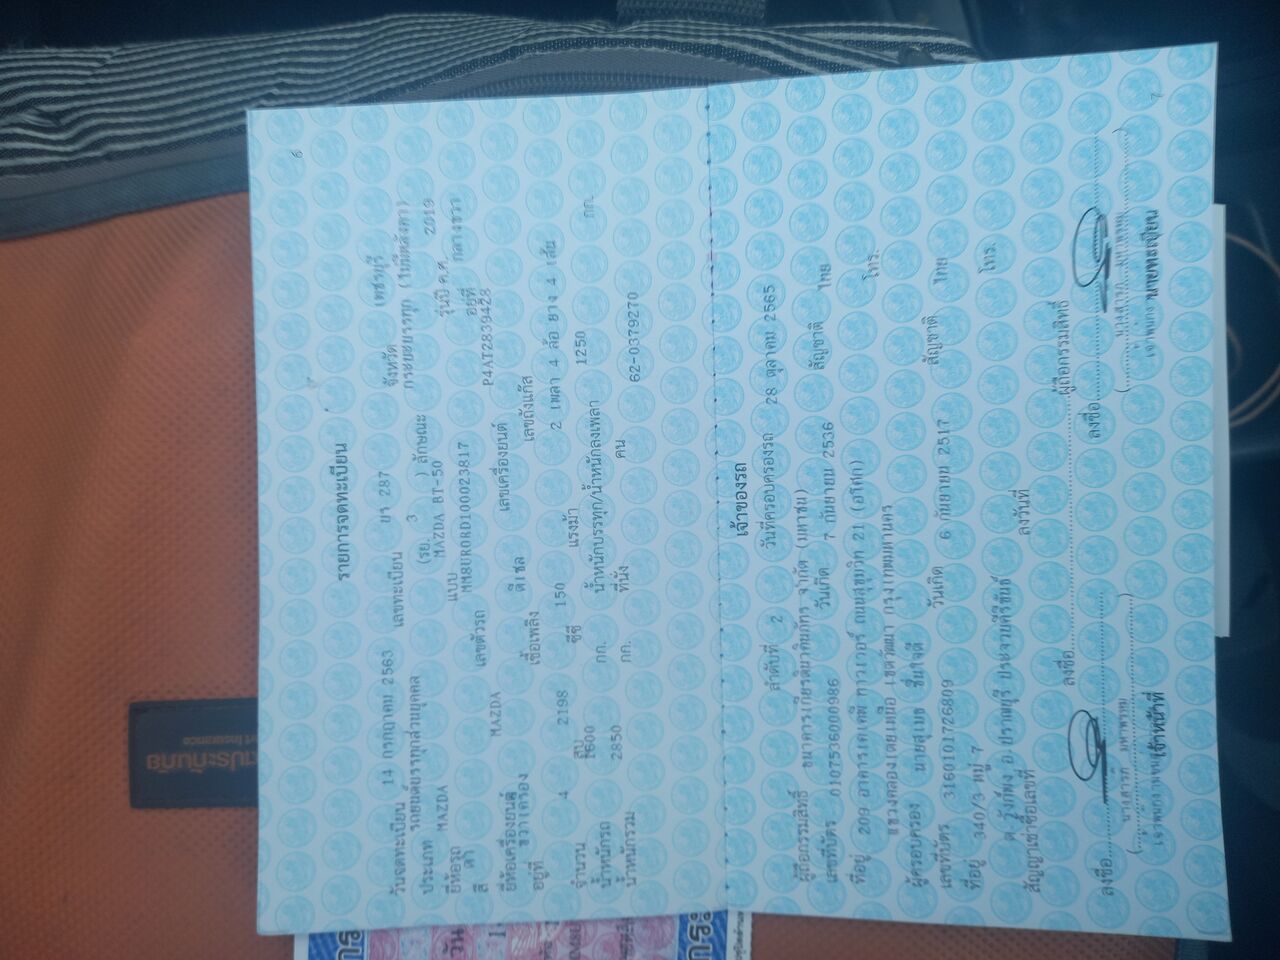 6
รายการจดทะเบียน
วันจดทะเบียน 14 กรกฎาคม 2563 เลขทะเบียน ยร 287 จังหวัด เพชรบุรี
ประเภท รถยนต์บรรทุกส่วนบุคคล (รย. 3 ) ลักษณะ กระบะบรรทุก (ไม่มีหลังคา)
ยี่ห้อรถ MAZDA แบบ MAZDA BT-50 รุ่นปี ค.ศ. 2019
สี ดำ เลขตัวรถ MM8UR0RD100023817 อยู่ที่ กลางขวา
ยี่ห้อเครื่องยนต์ MAZDA เลขเครื่องยนต์ P4AT2839428
อยู่ที่ ขวาเครื่อง เชื้อเพลิง ดีเซล เลขถังแก๊ส
จำนวน 4 สูบ 2198 ซีซี 150 แรงม้า 2 เพลา 4 ล้อ ยาง 4 เส้น
น้ำหนักรถ 1600 กก. น้ำหนักบรรทุก/น้ำหนักลงเพลา 1250 กก.
น้ำหนักรวม 2850 กก. ที่นั่ง คน 62-0379270
เจ้าของรถ
ลำดับที่ 2 วันที่ครอบครองรถ 28 ตุลาคม 2565
ผู้ถือกรรมสิทธิ์ ธนาคารเกียรตินาคินภัทร จำกัด (มหาชน)
เลขที่บัตร 0107536000986 วันเกิด 7 กันยายน 2536 สัญชาติ ไทย
ที่อยู่ 209 อาคารเคเคพี ทาวเวอร์ ถนนสุขุมวิท 21 (อโศก)
แขวงคลองเตยเหนือ เขตวัฒนา กรุงเทพมหานคร โทร.
ผู้ครอบครอง นายสุเมธ ชื่นใจดี
เลขที่บัตร 3160101726809 วันเกิด 6 กันยายน 2517 สัญชาติ ไทย
ที่อยู่ 340/3 หมู่ 7
ต.วังก์พง อ.ปราณบุรี ประจวบคีรีขันธ์ โทร.
สัญญาเช่าซื้อเลขที่ ลงวันที่
ลงชื่อ ผู้ถือกรรมสิทธิ์
ลงชื่อ ลงชื่อ
เจ้าหน้าที่ นายทะเบียน
7